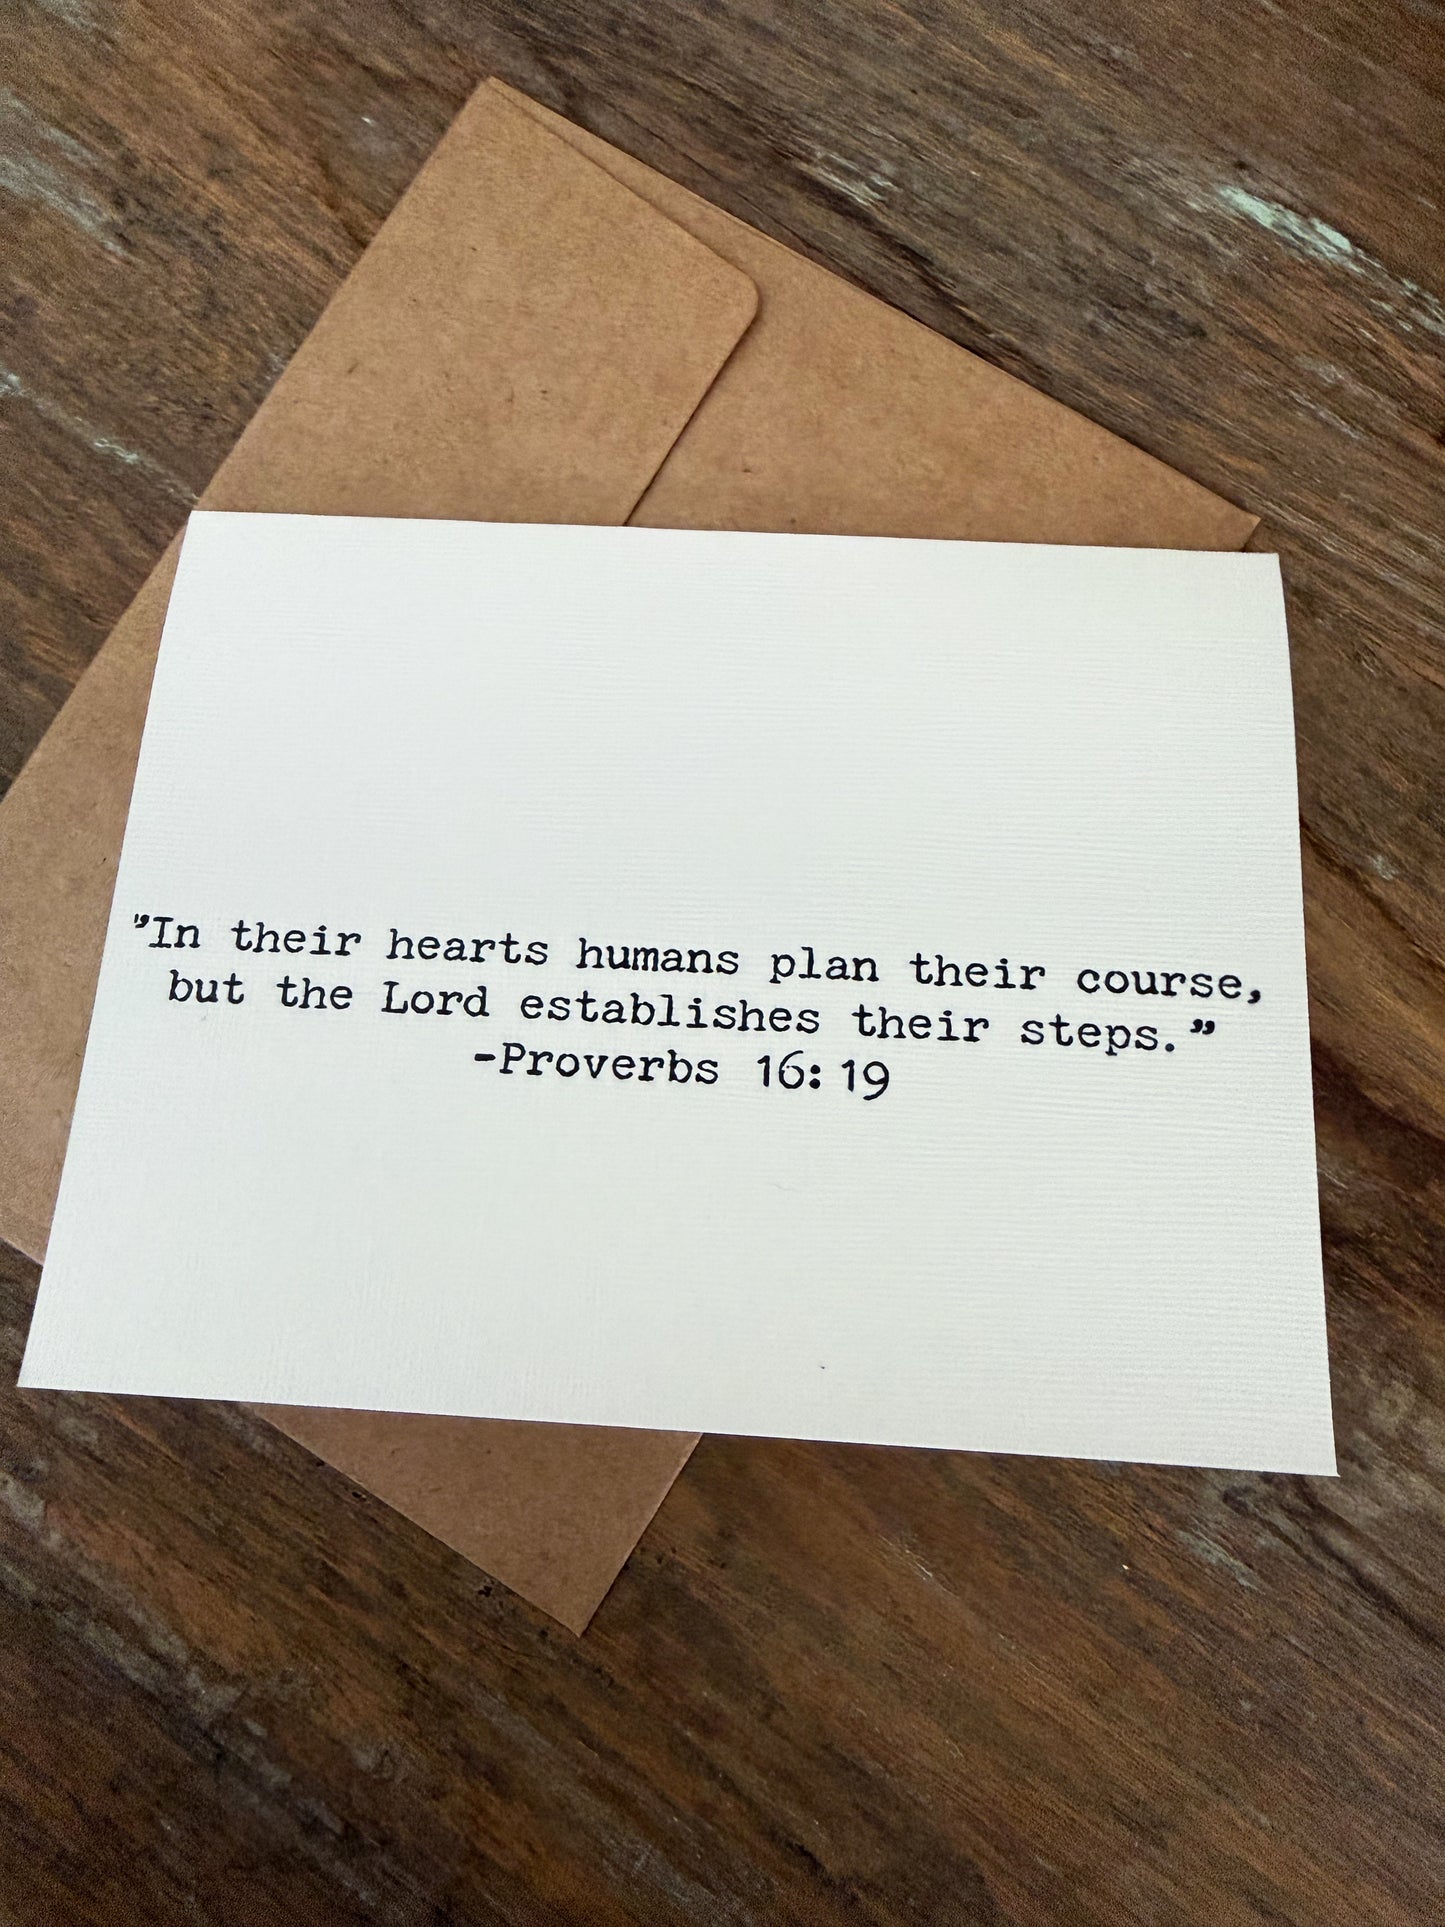 ”In their hearts humans plan their course,
but the Lord establishes their steps.”
-Proverbs 16:19